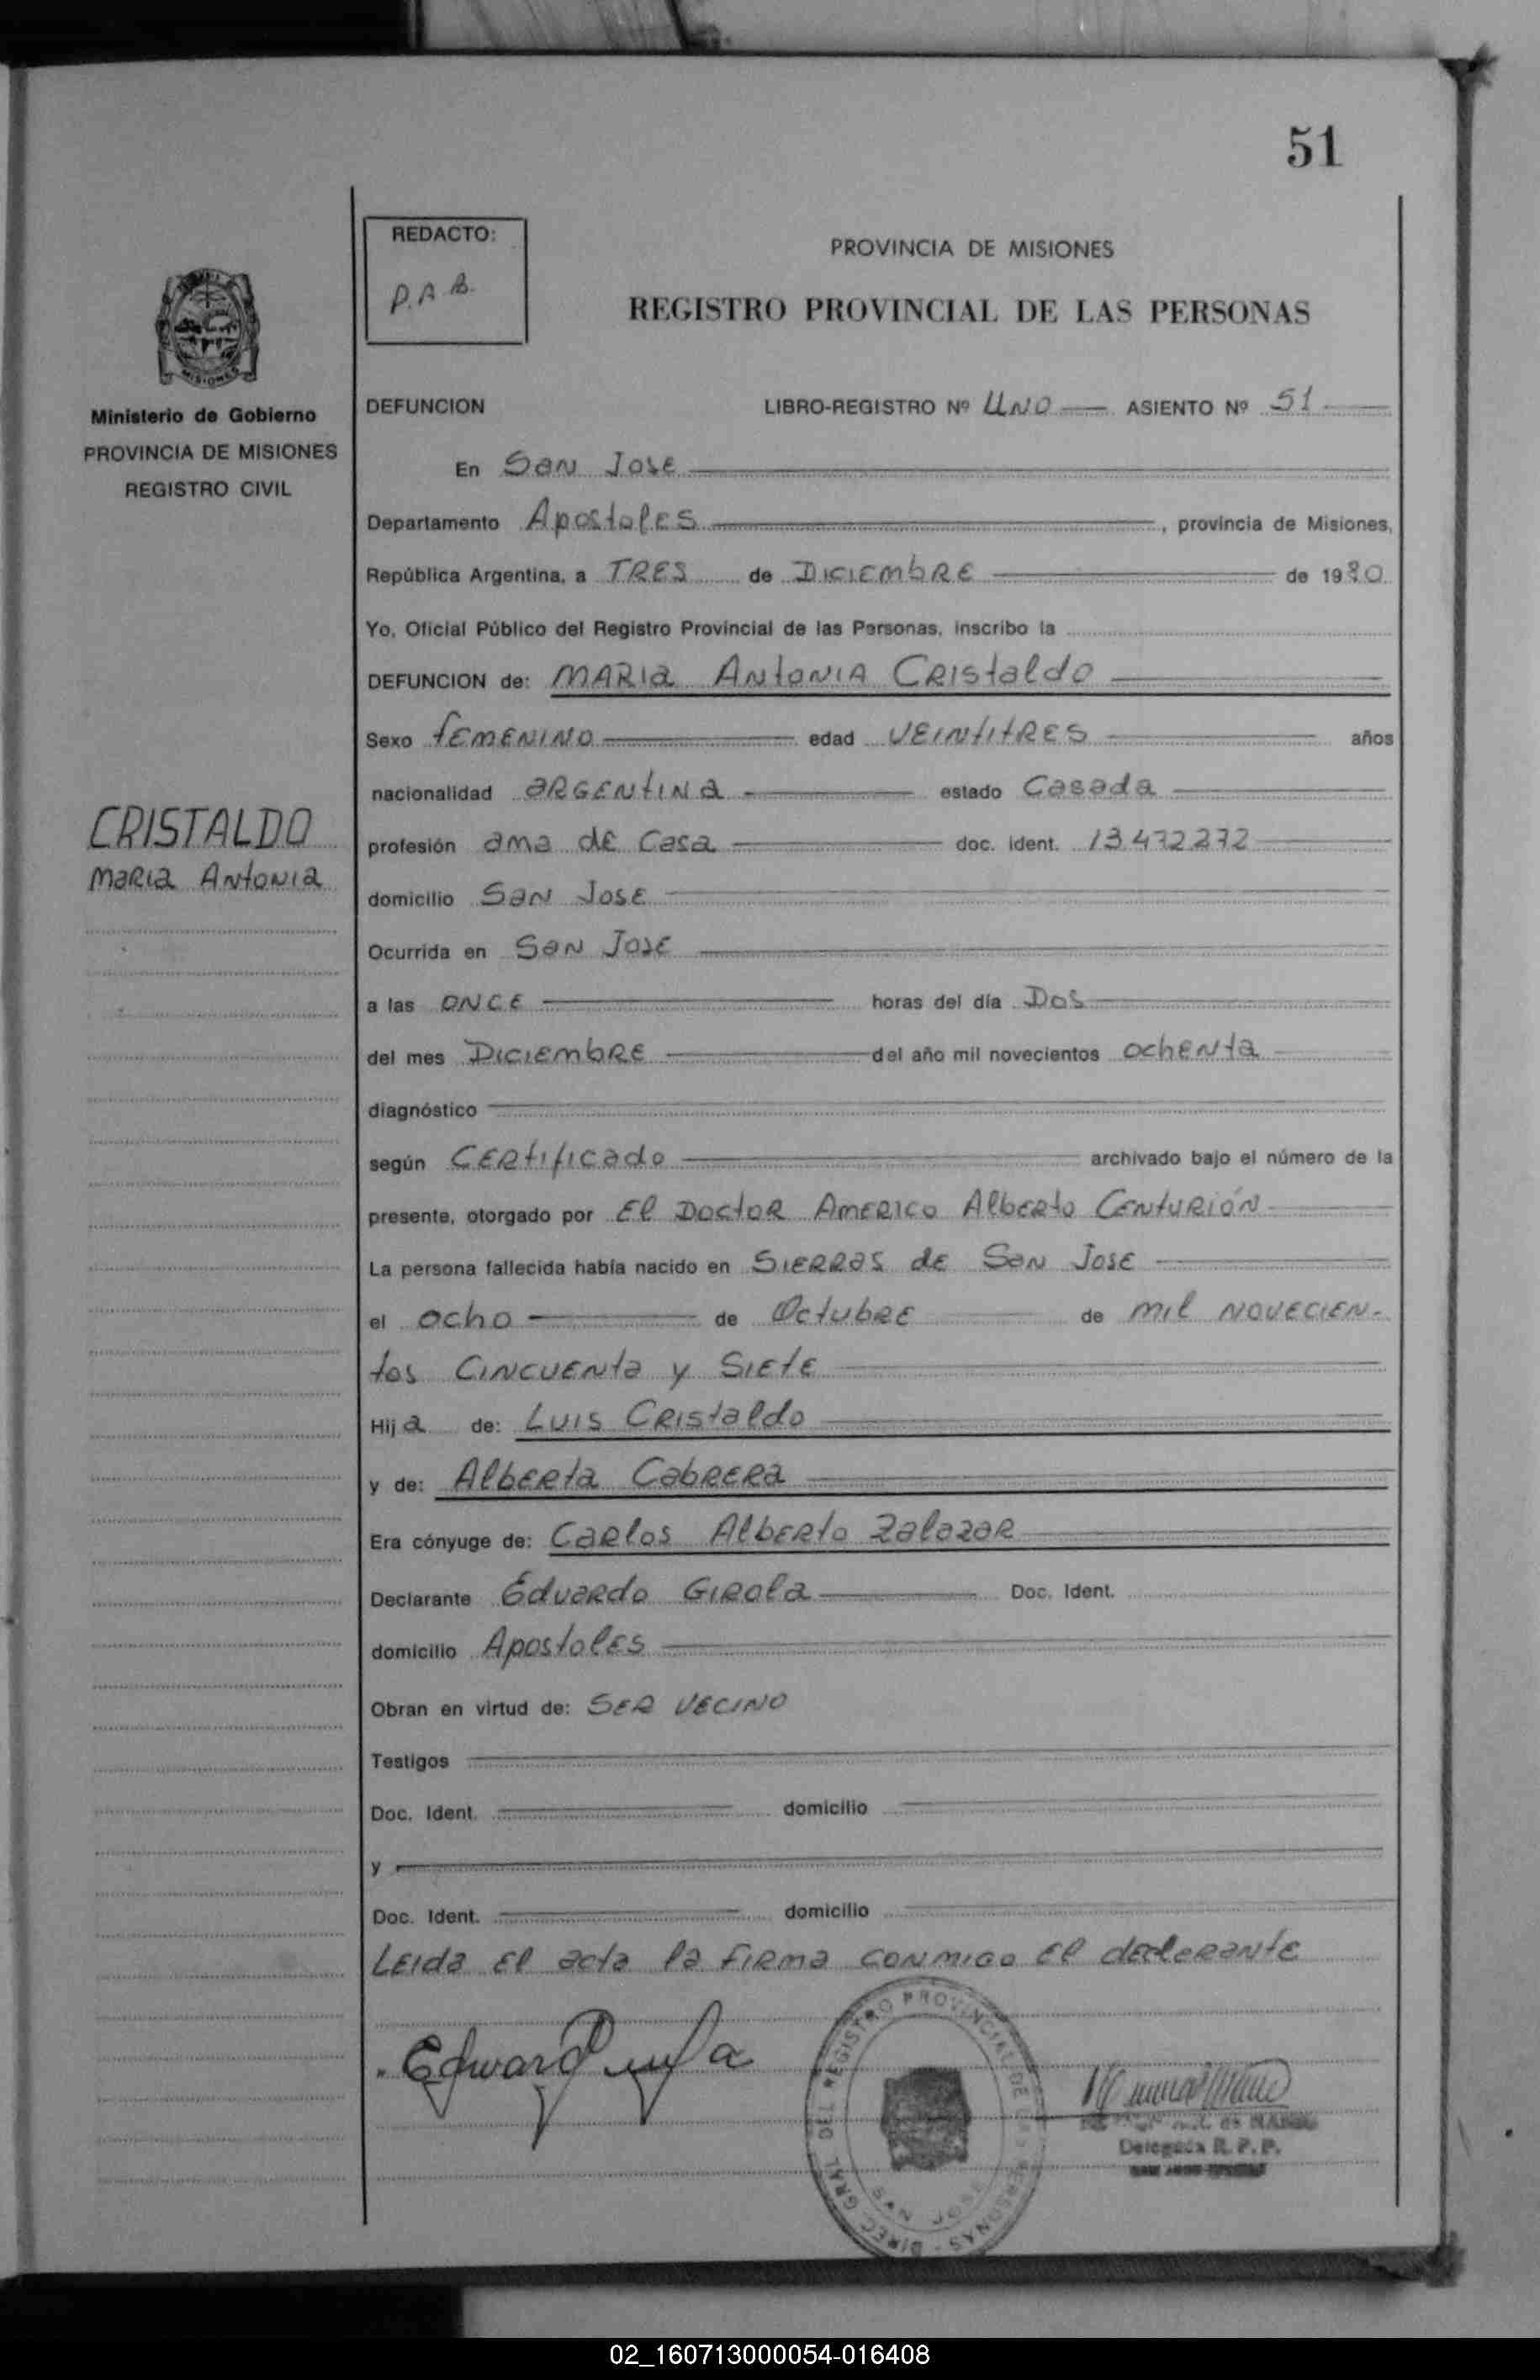 51
REDACTO:
P.A.B.
PROVINCIA DE MISIONES
REGISTRO PROVINCIAL DE LAS PERSONAS
MISIONES
Ministerio de Gobierno
PROVINCIA DE MISIONES
REGISTRO CIVIL
CRISTALDO
Maria Antonia
DEFUNCION LIBRO-REGISTRO Nº UNO ASIENTO Nº 51
En San Jose
Departamento Apostoles, provincia de Misiones,
República Argentina, a TRES de Diciembre de 1980
Yo, Oficial Público del Registro Provincial de las Personas, inscribo la
DEFUNCION de: Maria Antonia Cristaldo
Sexo femenino edad veintitres años
nacionalidad argentina estado Casada
profesión ama de Casa doc. ident. 13.472.272
domicilio San Jose
Ocurrida en San Jose
a las once horas del día Dos
del mes Diciembre del año mil novecientos ochenta
diagnóstico
según Certificado archivado bajo el número de la
presente, otorgado por El Doctor Americo Alberto Centurión
La persona fallecida había nacido en Sierras de San Jose
el ocho de Octubre de mil novecien-
tos cincuenta y siete
Hija de: Luis Cristaldo
y de: Alberta Cabrera
Era cónyuge de: Carlos Alberto Zalazar
Declarante Eduardo Girola Doc. Ident.
domicilio Apostoles
Obran en virtud de: ser vecino
Testigos
Doc. Ident. domicilio
y
Doc. Ident. domicilio
Leida el acta la firma conmigo el declarante
DIREC. GRAL. DEL REGISTRO PROVINCIAL DE LAS PERSONAS
SAN JOSE
Delegada R. P. P.
02_160713000054-016408